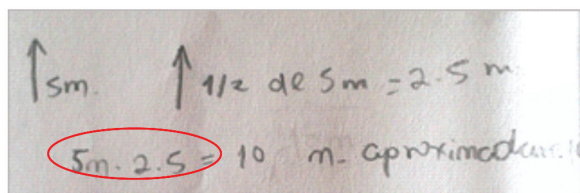 5m. 1/2 de 5m = 2.5 m
5m. 2.5 = 10 m. aproximadam.